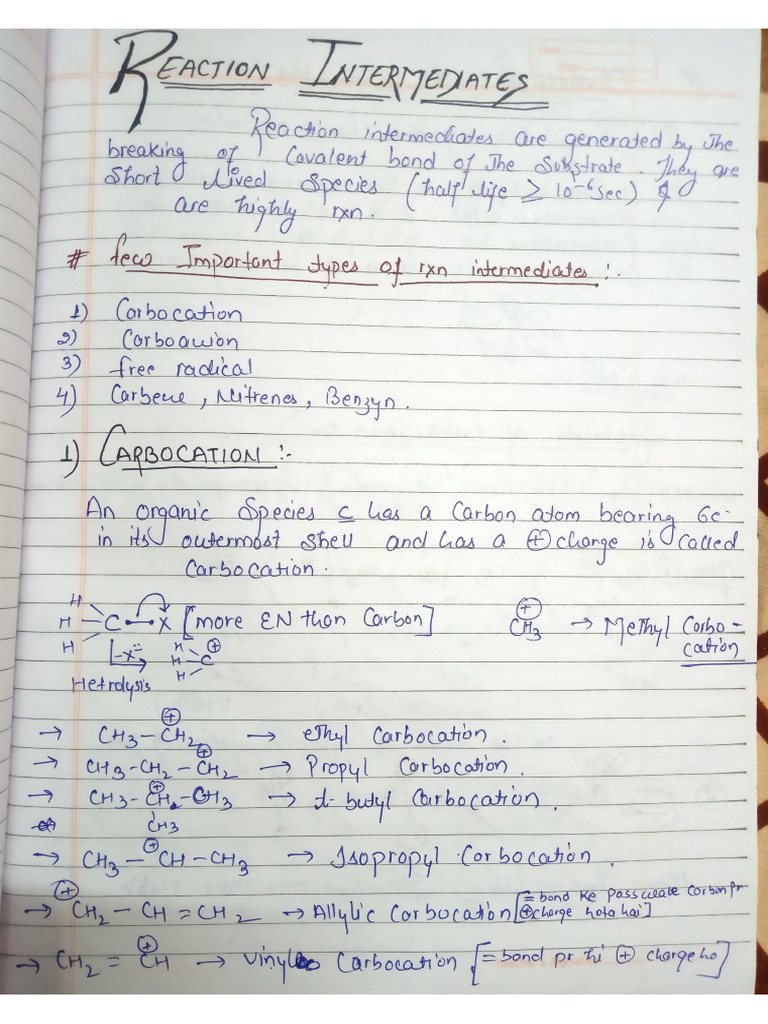 REACTION INTERMEDIATES
Reaction intermediates are generated by The
breaking of Covalent bond of The Substrate. They are
Short lived Species (half life ≥ 10⁻⁶ sec) &
are highly rxn.
# few Important types of rxn intermediates :-
1) Carbocation
2) Carboanion
3) free radical
4) Carbene, Nitrenes, Benzyn.
1) CARBOCATION :-
An organic Species c̲ has a Carbon atom bearing 6e-
in its outermost shell and has a ⊕ charge is Called
Carbocation.
H
H C X [more EN than Carbon] ⊕CH₃ → Methyl Carbo-
cation
H
-X⁻ H H H C ⊕
Hetrolysis
→ CH₃ - ⊕CH₂ → ethyl Carbocation.
→ CH₃-CH₂-⊕CH₂ → Propyl Carbocation.
→ CH₃-⊕CH-CH₃ → t-butyl Carbocation.
CH₃
→ CH₃ - ⊕CH - CH₃ → Isopropyl Carbocation.
→ ⊕CH₂ - CH = CH₂ → Allylic Carbocation [= bond ke pass wale Carbon pr
⊕ charge hota hai]
→ CH₂ = ⊕CH → Vinyl Carbocation [= bond pr hi ⊕ charge ho]